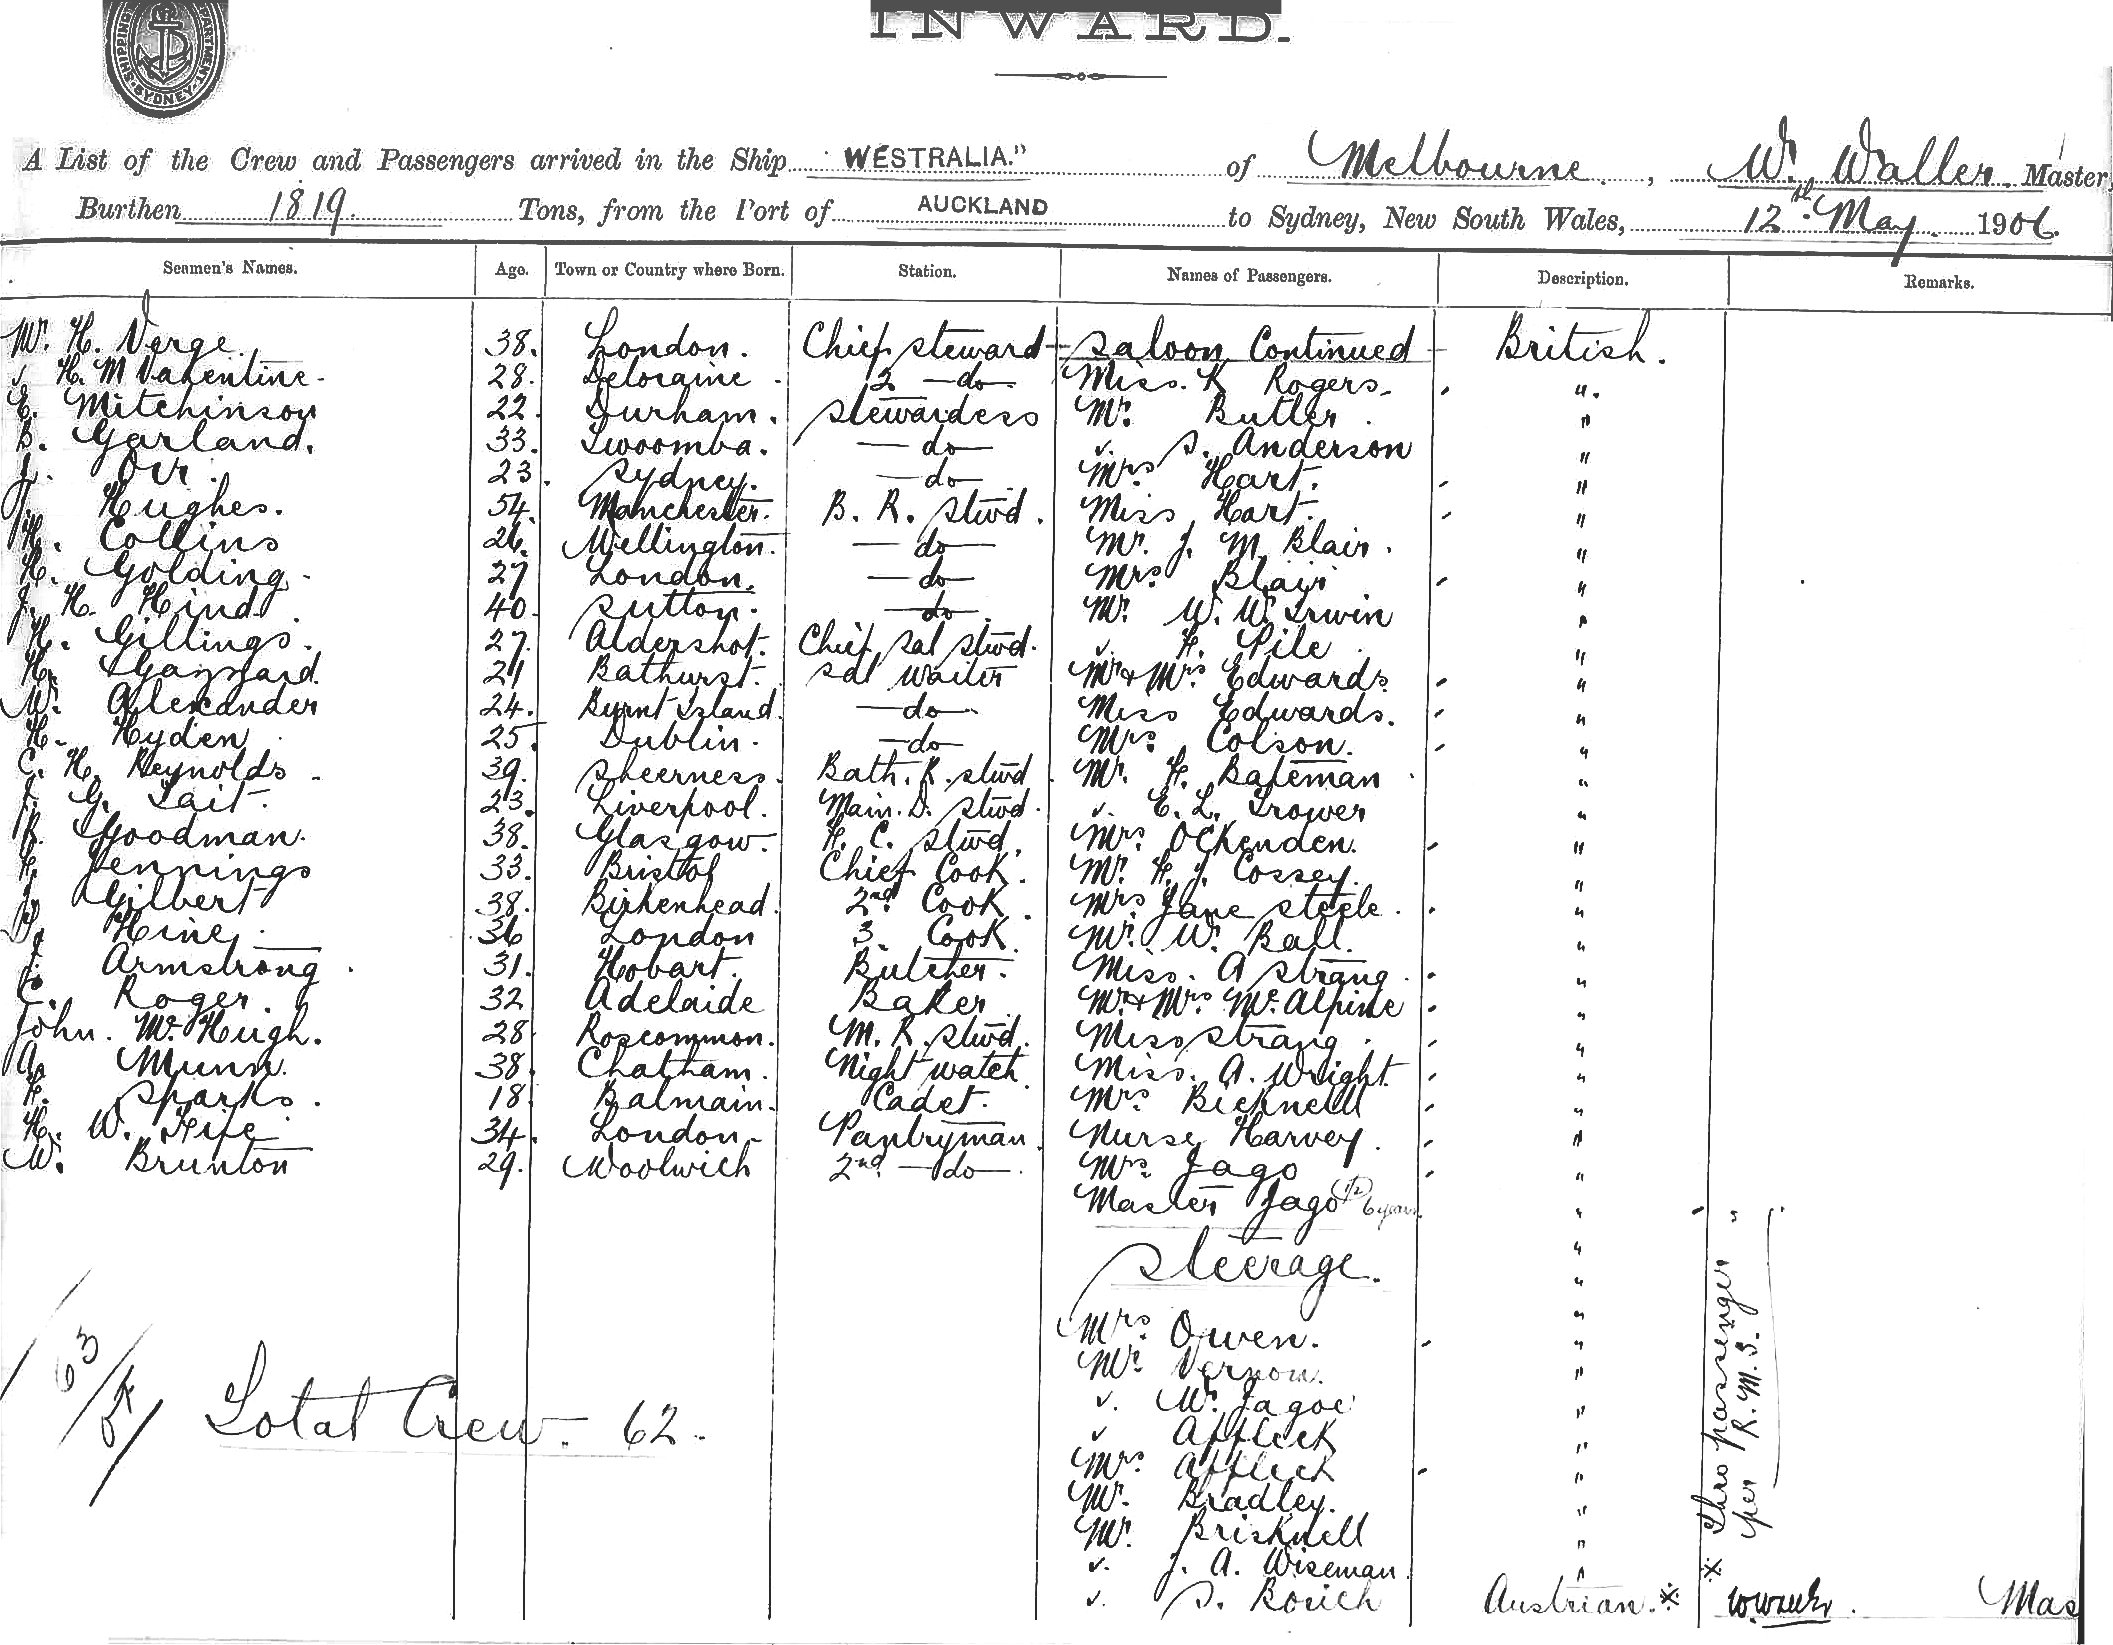 SHIPPING DEPARTMENT SYDNEY
INWARD.
A List of the Crew and Passengers arrived in the Ship "WESTRALIA." of Melbourne, W. Waller. Master
Burthen 1819. Tons, from the Port of AUCKLAND to Sydney, New South Wales, 12th May. 1906.
Seamen's Names. Age. Town or Country where Born. Station. Names of Passengers. Description. Remarks.
W. H. Verge. 38. London. Chief Steward Saloon Continued British.
H. M Valentine. 28. Deloraine. 2 - do - Miss. K Rogers. "
E. Mitchinson 22. Durham. Stewardess Mr. Butler "
B. Garland. 33. Twoomba. - do - " S. Anderson "
Orr. 23. Sydney. - do - Mrs Hart. "
Hughes. 54. Manchester. B. R. Stwd. Miss Hart. "
H. Collins 26. Wellington. - do - Mr. J. M. Blair. "
H. Golding. 27 London. - do - Mrs Blair "
J. H. Hind. 40. Sutton. - do - Mr. W. W. Irwin "
H. Gillings. 27. Aldershot. Chief Sal Stwd. " H. Pile "
H. Gaynard. 21 Bathurst. Sal Waiter Mr & Mrs Edwards "
W. Alexander 24. Burnt Island. - do - Miss Edwards. "
H. Hyden 25. Dublin. - do - Mrs. Colson. "
C. H. Reynolds. 39. Sheerness. Bath. R. Stwd Mr. H. Bateman "
J. G. Tait. 23. Liverpool. Main. D. Stwd. " E. L. Trower "
R. Goodman. 38. Glasgow. F. C. Stwd. Mrs. Ockenden. "
H. Jennings 33. Bristol Chief Cook. Mr. H. J. Cossey. "
J. Gilbert 38. Birkenhead. 2nd Cook. Mrs Jane Steele. "
Hine. 36 London 3. Cook. Mr. W. Ball. "
J. Armstrong. 31. Hobart. Butcher. Miss. A Strang. "
C. Roger. 32 Adelaide Baker Mr & Mrs McAlpine "
John. McHugh. 28. Roscommon. M. R. Stwd. Miss Strang. "
A. Munn. 38. Chatham. Night watch Miss. A. Wright. "
H. Sparks. 18. Balmain. Cadet. Mrs. Bicknell "
H. W. Fife 34. London. Pantryman. Nurse Harvey. "
W. Brunton 29. Woolwich 2nd - do - Mrs. Jago "
Master Jago 1/2 6 years. "
Steerage. "
Mrs. Owen. "
Mr. Vernon. "
" W. Jagoe "
" Affleck "
Mrs. Affleck "
Mr. Bradley. "
Mr. Bricknell "
" J. A. Wiseman. "
" S. Rosich Austrian. ※
63/
Total Crew. 62.
※ Thro passenger "
per R. M. S.
W. Waller. Mas